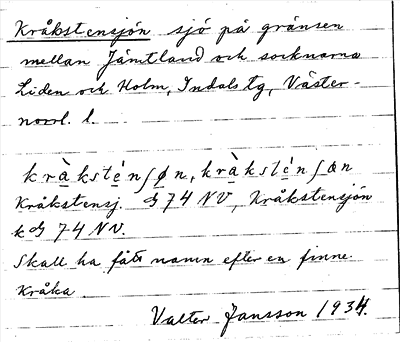 Kråkstensjön sjö på gränsen
mellan Jämtland och socknarna
Liden och Holm, Indals tg, Väster-
norrl. l.
kràksténʃøn, kràksténʃøn
Kråkstensj. G 74 NV, Kråkstensjön
k G 74 NV.
Skall ha fått namn efter en finne
Kråka
Valter Jansson 1934.